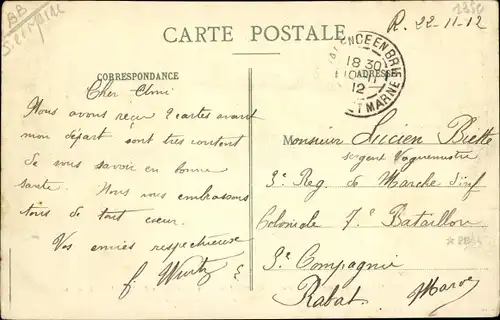 BB
R. 22-11-12
CARTE POSTALE
ENCE EN BRIE
18 30
12
T MARNE
CORRESPONDANCE
ADRESSE
Cher Ami
Nous avons reçu 2 cartes avant
mon départ sont très content
de vous savoir en bonne
santé. Nous vous embrassons
tous de tout cœur.
Vos amies respectueuse
f. Wurtz
Monsieur Lucien Biette
sergent Vaguemestre
3e Reg. de Marche d'inf
Coloniale 7e Bataillon
3e Compagnie
Rabat. Maroc